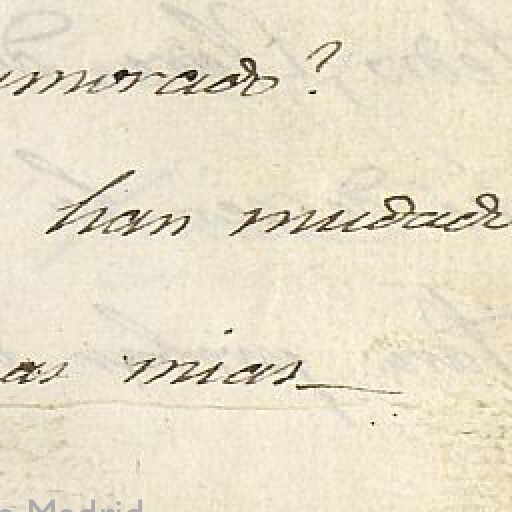 amorado?
han mudado
as mias
Madrid